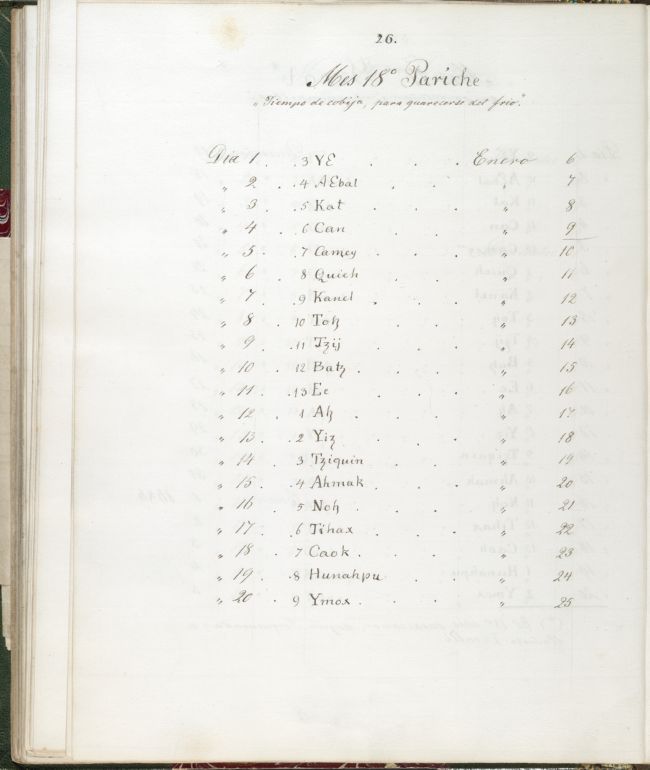 26.
Mes 18º Pariche
"Tiempo de cobija, para guarecerse del frio".
Dia 1 . . 3 YE . . . Enero 6
" 2 . . 4 AEbal . . " 7
" 3 . . 5 Kat . . . " 8
" 4 . . 6 Can . . " 9
" 5 . . 7 Camey . . . " 10
" 6 . 8 Quieh . . " 11
" 7 . . 9 Kanel . . . " 12
" 8 . 10 Toh . . " 13
" 9 . . 11 Tzij . . . " 14
" 10 . 12 Batz . . . " 15
" 11 . . 13 Ee . . . " 16
" 12 . . 1 Ah . . . " 17
" 13 . . 2 Yiz . . " 18
" 14 . 3 Tziquin . . " 19
" 15 . . 4 Ahmak . . . " 20
" 16 . 5 Noh . . " 21
" 17 . . 6 Tihax . . . " 22
" 18 . 7 Caok . . . " 23
" 19 . . 8 Hunahpu . . " 24
" 20 . 9 Ymox . . . " 25